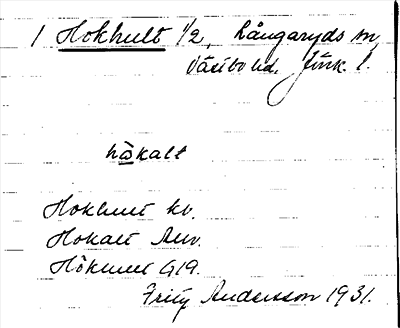 1 Hokhult 1/2, Långaryds sn,
Västbo hd. Jönk. l.
håkalt
Hokhult kb.
Hokalt Anv.
Hökhult G19.
Fritz Andersson 1931.